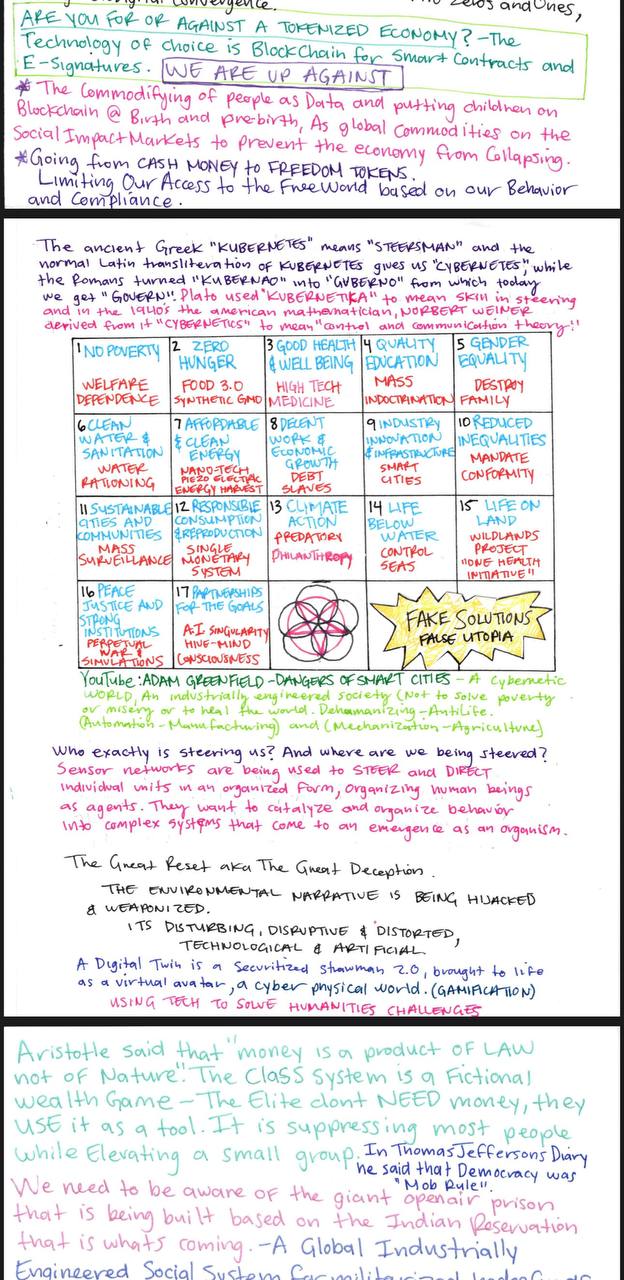 Zeros and Ones,
ARE YOU FOR OR AGAINST A TOKENIZED ECONOMY? - The
Technology of choice is BlockChain for Smart Contracts and
E-Signatures. WE ARE UP AGAINST
* The Commodifying of people as Data and putting children on
Blockchain @ Birth and pre-birth, As global Commodities on the
Social Impact Markets to prevent the economy from Collapsing.
* Going from CASH MONEY to FREEDOM TOKENS.
Limiting Our Access to the Free World based on our Behavior
and Compliance.
The ancient Greek "KUBERNETES" means "STEERSMAN" and the
normal Latin transliteration of KUBERNETES gives us "CYBERNETES", while
the Romans turned "KUBERNAO" into "GUBERNO" from which today
we get "GOVERN". Plato used "KUBERNETIKA" to mean skill in steering
and in the 1940s the american mathematician, NORBERT WEINER
derived from it "CYBERNETICS" to mean "control and communication theory".
1 NO POVERTY
WELFARE
DEPENDENCE
2 ZERO
HUNGER
FOOD 3.0
SYNTHETIC GMO
3 GOOD HEALTH
& WELL BEING
HIGH TECH
MEDICINE
4 QUALITY
EDUCATION
MASS
INDOCTRINATION
5 GENDER
EQUALITY
DESTROY
FAMILY
6 CLEAN
WATER &
SANITATION
WATER
RATIONING
7 AFFORDABLE
& CLEAN
ENERGY
NANO-TECH
PIEZO ELECTRIC
ENERGY HARVEST
8 DECENT
WORK &
ECONOMIC
GROWTH
DEBT
SLAVES
9 INDUSTRY
INNOVATION
& INFRASTRUCTURE
SMART
CITIES
10 REDUCED
INEQUALITIES
MANDATE
CONFORMITY
11 SUSTAINABLE
CITIES AND
COMMUNITIES
MASS
SURVEILLANCE
12 RESPONSIBLE
CONSUMPTION
& REPRODUCTION
SINGLE
MONETARY
SYSTEM
13 CLIMATE
ACTION
PREDATORY
PHILANTHROPY
14 LIFE
BELOW
WATER
CONTROL
SEAS
15 LIFE ON
LAND
WILDLANDS
PROJECT
"ONE HEALTH
INITIATIVE"
16 PEACE
JUSTICE AND
STRONG
INSTITUTIONS
PERPETUAL
WAR &
SIMULATIONS
17 PARTNERSHIPS
FOR THE GOALS
A.I SINGULARITY
HIVE-MIND
CONSCIOUSNESS
FAKE SOLUTIONS
FALSE UTOPIA
YouTube: ADAM GREENFIELD - DANGERS OF SMART CITIES - A cybernetic
WORLD, An industrially engineered society (Not to solve poverty
or misery or to heal the world. Dehumanizing - AntiLife.
(Automation - Manufacturing) and (Mechanization - Agriculture)
Who exactly is steering us? And where are we being steered?
Sensor networks are being used to STEER and DIRECT
individual units in an organized form, organizing human beings
as agents. They want to catalyze and organize behavior
into complex systems that come to an emergence as an organism.
The Great Reset aka The Great Deception.
THE ENVIRONMENTAL NARRATIVE IS BEING HIJACKED
& WEAPONIZED.
ITS DISTURBING, DISRUPTIVE & DISTORTED,
TECHNOLOGICAL & ARTIFICIAL.
A Digital Twin is a Securitized strawman 2.0, brought to life
as a virtual avatar, a cyber physical world. (GAMIFICATION)
USING TECH TO SOLVE HUMANITIES CHALLENGES
Aristotle said that "money is a product of LAW
not of Nature". The Class System is a Fictional
wealth Game - The Elite dont NEED money, they
USE it as a tool. It is suppressing most people
while Elevating a small group. In Thomas Jeffersons Diary
he said that Democracy was
"Mob Rule".
We need to be aware of the giant openair prison
that is being built based on the Indian Reservation
that is whats coming. - A Global Industrially
Engineered Social System